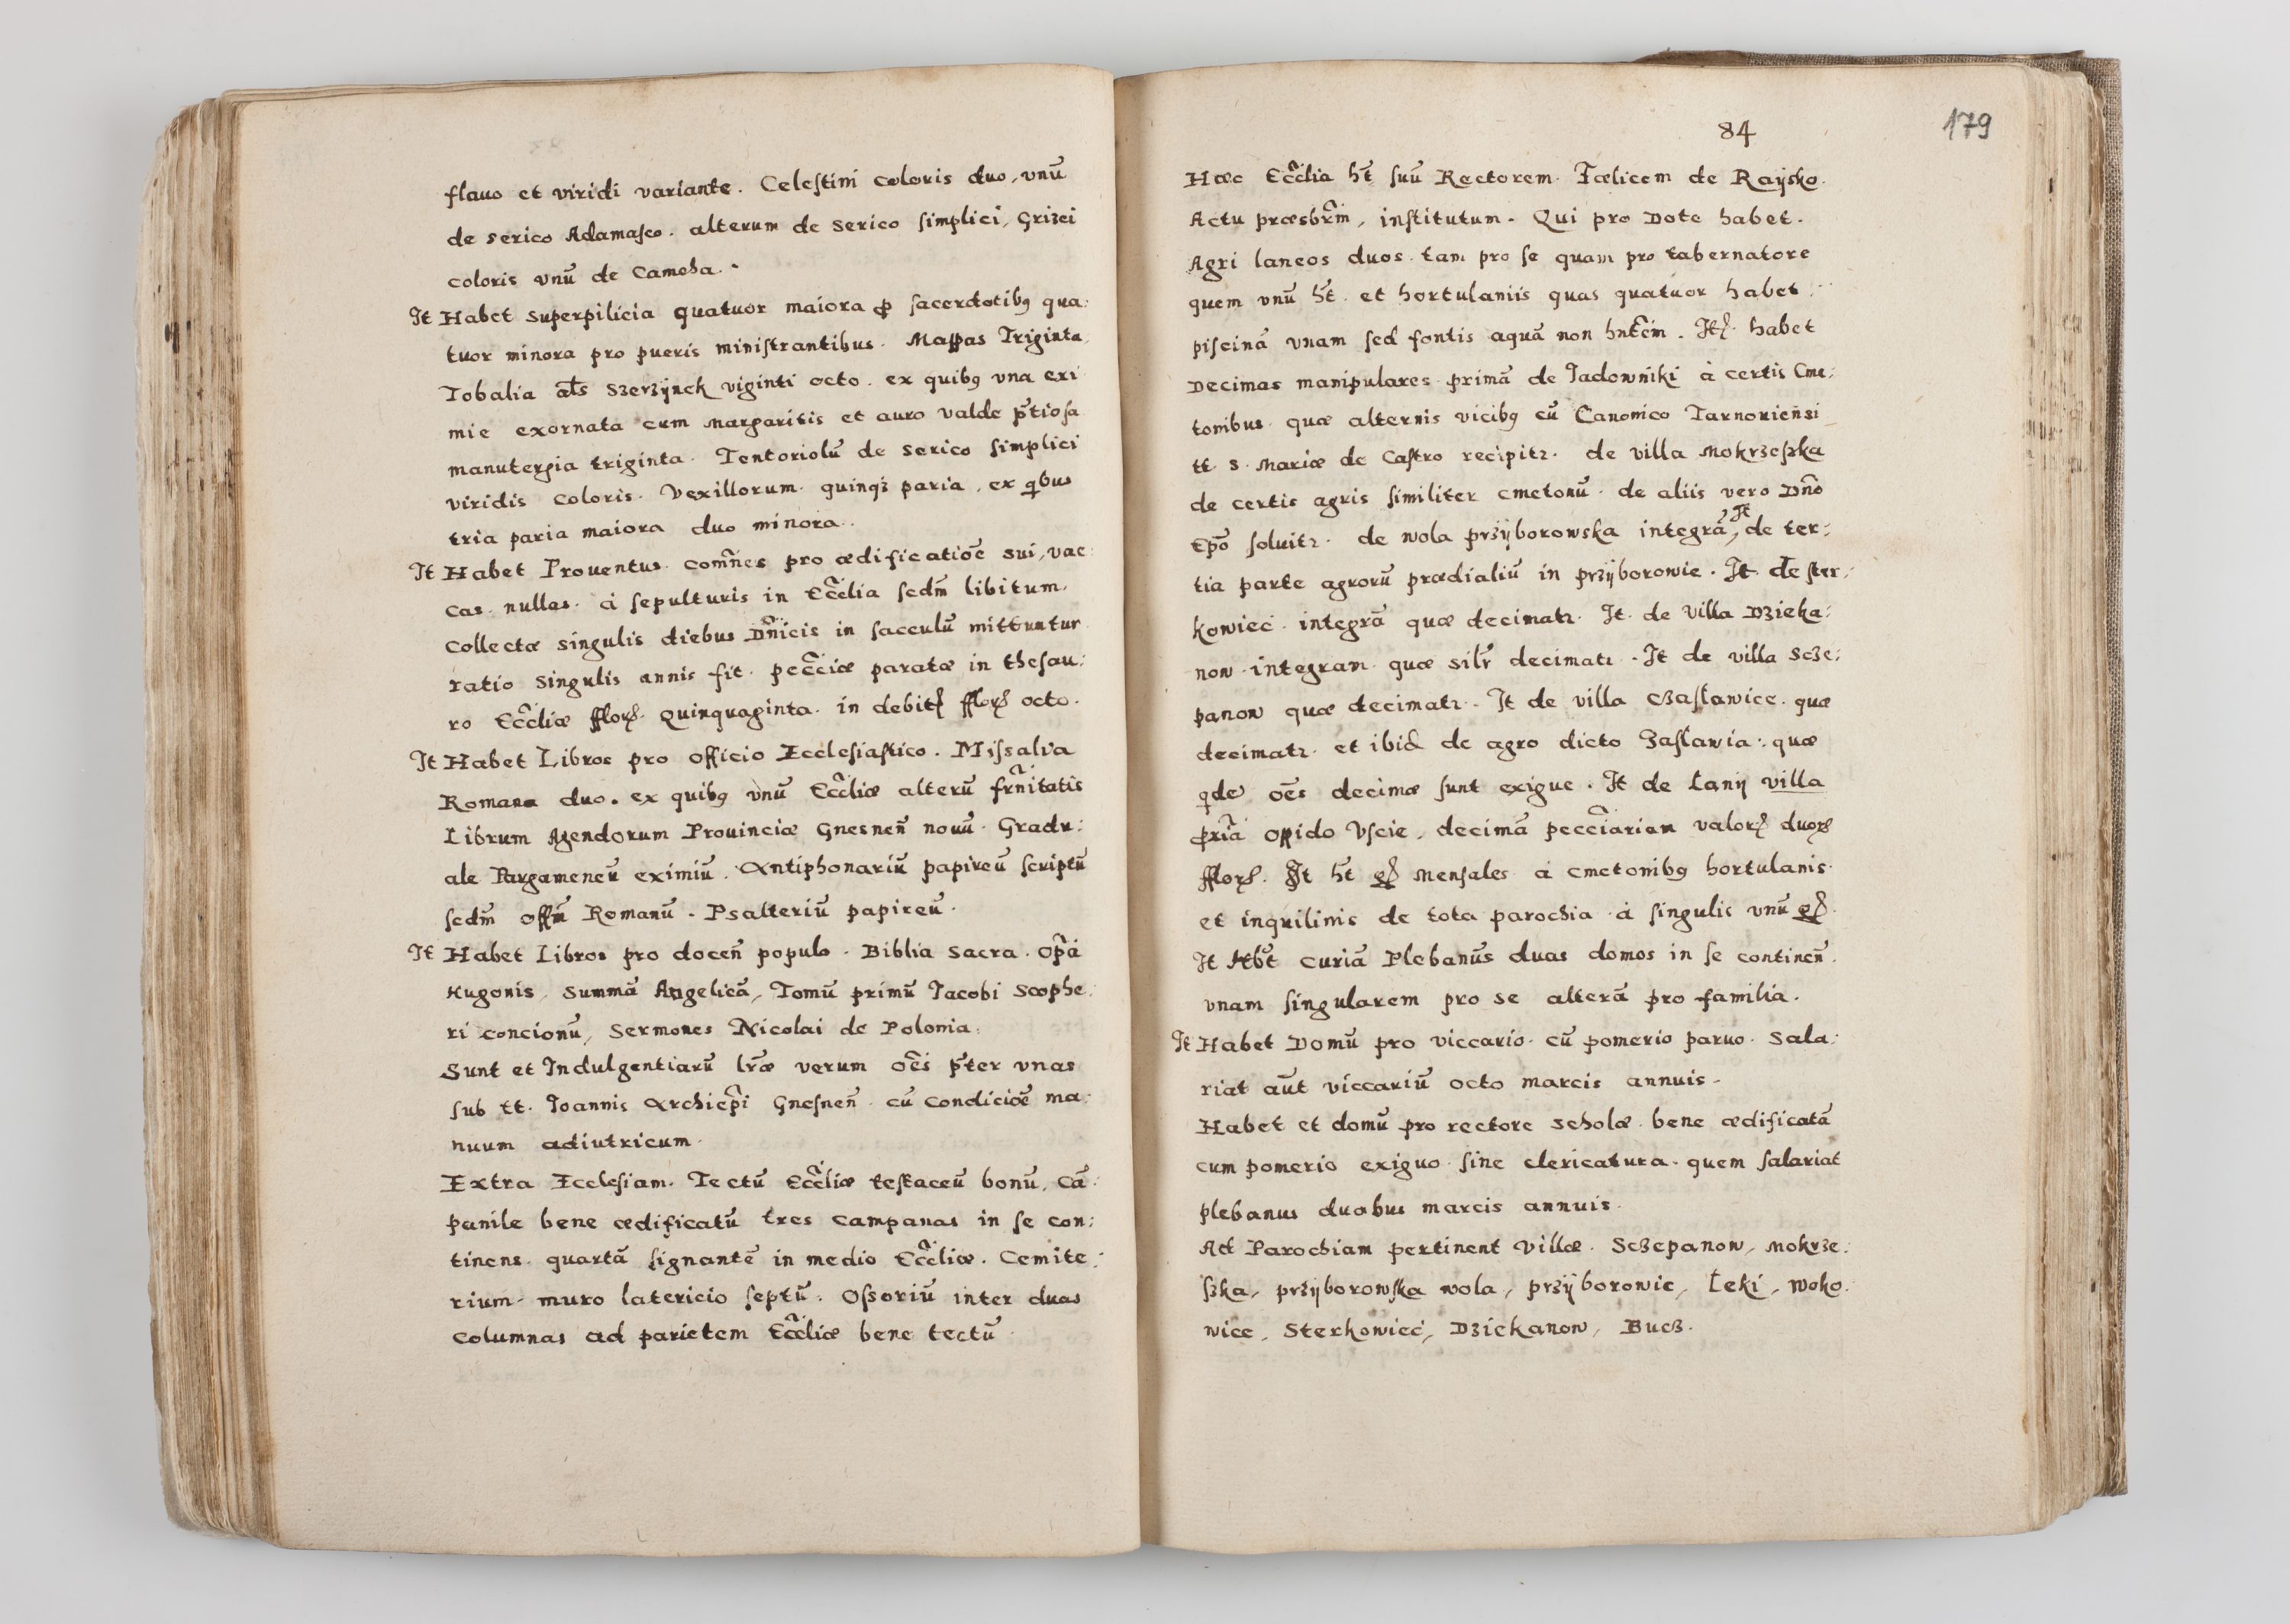 flauo et viridi variante. Celestini coloris duo, vnū
de serico Adamasco. alterum de serico simplici, Grizei
coloris vnū de Camcha.
It Habet superpilicia quatuor maiora ꝓ sacerdotibꝯ qua:
tuor minora pro pueris ministrantibus. Mappas Triginta,
Tobalia als Szerzÿnek viginti octo. ex quibꝯ vna exi
mie exornata cum margaritis et auro valde p̄tiosa
manutergia triginta. Tentoriolū de serico simplici
viridis coloris. Vexillorum quinqꝫ paria, ex qbus
tria paria maiora duo minora.
It Habet Prouentus com̄nes pro ædificatiōe sui, vac:
cas nullas. à sepulturis in Eccl̄ia scdm̄ libitum.
Collectæ singulis diebus Dn̄icis in sacculū mittuntur
ratio singulis annis fit. pecc̄iæ paratæ in thesau:
ro Eccl̄iæ fflorꝭ. Quinquaginta. in debitꝭ fflorꝭ octo.
It Habet Libros pro officio Ecclesiastico. Missalia
Romana duo. ex quibꝯ vnū Eccl̄iæ alterū frn̄itatis
Librum Agendorum Prouinciæ Gnesnen̄ nouū. Gradu:
ale Pargameneū eximiū. Antiphonariū papireū scriptū
scdm̄ offm̄ Romanū. Psalteriū papireū.
It Habet Libros pro docen̄ populo. Biblia sacra. Op̄a
Hugonis, summā Angelicā, Tomū primū Jacobi Scophe:
ri concionū, Sermones Nicolai de Polonia.
Sunt et Indulgentiarū lr̄æ verum oēs p̄ter vnas
sub tt. Joannis Archiepī Gnesnen̄ cū condiciōe ma:
nuum adiutricum.
Extra Ecclesiam. Tectū Eccl̄iæ testaceū bonū, Cā:
panile bene ædificatū tres campanas in se con:
tinens. quartā signantē in medio Eccl̄iæ. Cemite:
rium muro latericio septū. Ossoriū inter duas
columnas ad parietem Eccl̄iæ bene tectū
84
179
Hæc Eccl̄ia ht̄ suū Rectorem. Fælicem de Raÿsko.
Actu præsbrm̄, institutum. Qui pro Dote habet.
Agri laneos duos. tam pro se quam pro tabernatore
quem vnū ht̄. et hortulaniis quas quatuor habet:
piscinā vnam sed fontis aquā non hntēm. Itꝭ. habet
Decimas manipulares primā de Jadowniki à certis Cme:
tonibus quæ alternis vicibꝯ cū Canonico Tarnouiensi
tt. S. Mariæ de Castro recipitꝛ. de villa Mokrzeszka
de certis agris similiter cmetonū. de aliis vero Dn̄o
Ep̄o soluitꝛ. de wola przÿborowska integrā, It de ter:
tia parte agrorū prædialiū in przÿborowie. It de ster:
kowiec integrā quæ decimatꝛ. It. de villa Dzieka:
now integram quæ silr̄ decimatꝛ. It de villa Scze:
panow quæ decimatꝛ. It de villa Czasławice. quæ
decimatꝛ. et ibid de agro dicto Zasławia: quæ
qde oēs decimæ sunt exigue. It de Łanÿ villa
ꝓria oppido Vscie, decimā pecciariam valorꝭ duorꝭ
fflorꝭ. It ht Mensales à cmetonibꝯ hortulanis
et inquilinis de tota parochia à singulis vnū
It Hbt̄ curiā Plebanūs duas domos in se continen̄.
vnam singularem pro se alterā pro familia.
It Habet Domū pro viccario cū pomerio paruo. Sala:
riat aūt viccariū octo marcis annuis.
Habet et domū pro rectore scholæ bene ædificatā
cum pomerio exiguo sine clericatura. quem salariat
plebanus duabus marcis annuis.
Ad Parochiam pertinent Villæ. Sczepanow, Mokrze:
szka, przÿborowska wola, przÿborowie, Łeki, Woko:
wice, Sterkowiec, Dziekanow, Bucz.